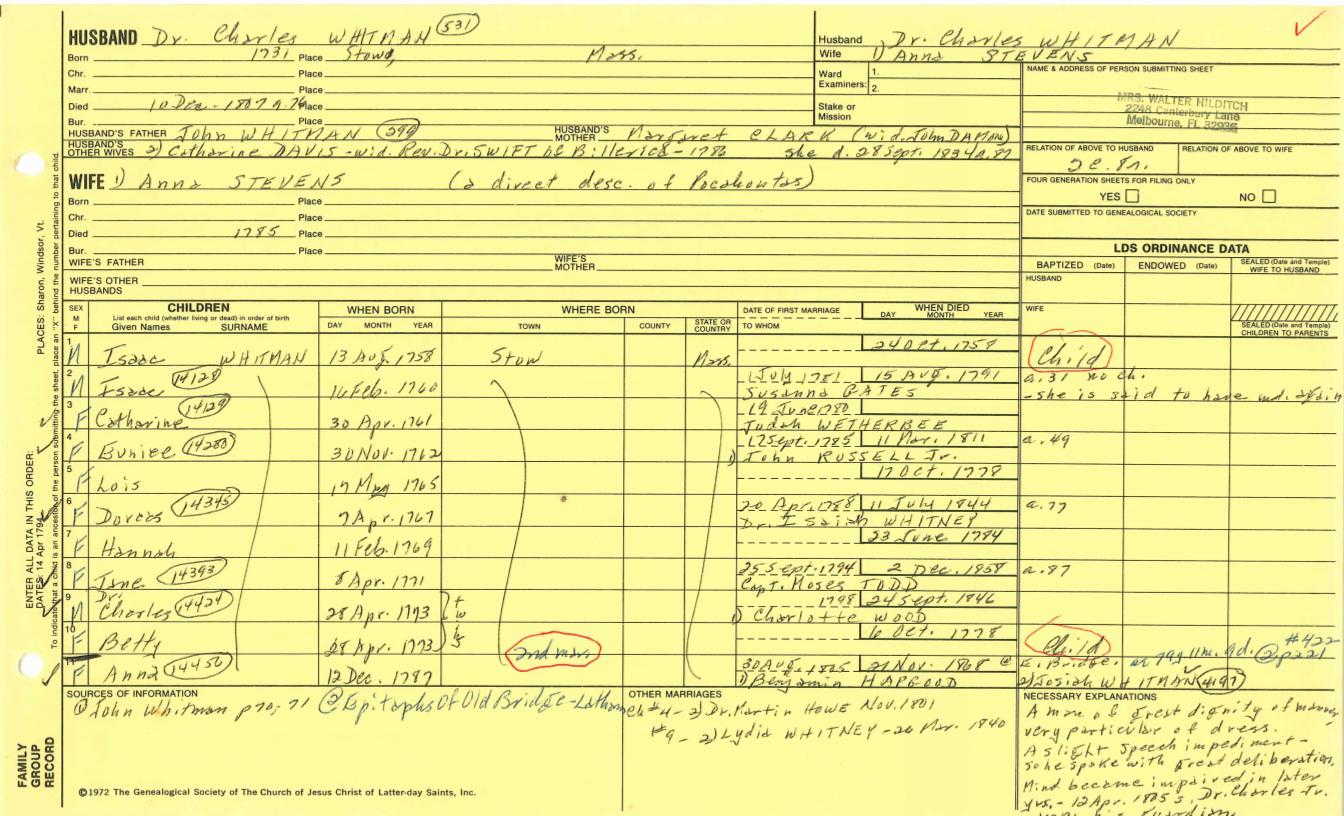 HUSBAND Dr. Charles WHITMAN 531
Born 1731 Place Stow, Mass.
Chr. Place
Marr. Place
Died 10 Dec. 1807 a. 76 Place
Bur. Place
HUSBAND'S FATHER John WHITMAN 299 HUSBAND'S MOTHER Margaret CLARK (wid. John DAMON)
HUSBAND'S OTHER WIVES 2) Catharine DAVIS - wid. Rev. Dr. SWIFT of Billerica - 1786 she d. 28 Sept. 1834 a. 87
WIFE 1) Anna STEVENS (a direct desc. of Pocahontas)
Born Place
Chr. Place
Died 1785 Place
Bur. Place
WIFE'S FATHER WIFE'S MOTHER
WIFE'S OTHER HUSBANDS
Husband Dr. Charles WHITMAN
Wife 1) Anna STEVENS
Ward Examiners: 1. 2.
Stake or Mission
NAME & ADDRESS OF PERSON SUBMITTING SHEET
MRS. WALTER HILDITCH
2248 Canterbury Lane
Melbourne, FL 32935
RELATION OF ABOVE TO HUSBAND RELATION OF ABOVE TO WIFE
FOUR GENERATION SHEETS FOR FILING ONLY
YES NO
DATE SUBMITTED TO GENEALOGICAL SOCIETY
LDS ORDINANCE DATA
BAPTIZED (Date) ENDOWED (Date) SEALED (Date and Temple) WIFE TO HUSBAND
HUSBAND
WIFE
SEALED (Date and Temple) CHILDREN TO PARENTS
SEX M F CHILDREN List each child (whether living or dead) in order of birth Given Names SURNAME WHEN BORN DAY MONTH YEAR WHERE BORN TOWN COUNTY STATE OR COUNTRY DATE OF FIRST MARRIAGE TO WHOM WHEN DIED DAY MONTH YEAR
1 M Isaac WHITMAN 13 Aug. 1758 Stow Mass. 24 Oct. 1758 Child
2 M Isaac 14128 16 Feb. 1760 1 July 1781 15 Aug. 1791 a. 31 no ch.
Susanna GATES - she is said to have md. again
3 F Catharine 14129 30 Apr. 1761 19 June 1780
Judah WETHERBEE
4 F Eunice 14288 30 Nov. 1762 17 Sept. 1785 11 Mar. 1811 a. 49
1) John RUSSELL Jr.
5 F Lois 17 May 1765 17 Oct. 1778
6 F Dorcas 14345 7 Apr. 1767 20 Apr. 1788 11 July 1844 a. 77
Dr. Isaiah WHITNEY
7 F Hannah 11 Feb. 1769 23 June 1784
8 F Jane 14393 8 Apr. 1771 25 Sept. 1794 2 Dec. 1858 a. 87
Capt. Moses TODD
9 M Dr. Charles 14424 28 Apr. 1773 1798 24 Sept. 1846
1) Charlotte WOOD
10 F Betty 28 Apr. 1773 6 Oct. 1778 Child
2nd marr.
11 F Anna 14450 12 Dec. 1787 30 Aug. 1805 21 Nov. 1868 @ E. Bridge. #422 @ p221
1) Benjamin HAPGOOD 2) Josiah WHITMAN 4197
SOURCES OF INFORMATION
① John Whitman p70, 71 @ Epitaphs Of Old Bridge - Latham
OTHER MARRIAGES
ch #4 - 2) Dr. Martin HOWE Nov. 1801
#9 - 2) Lydia WHITNEY - 26 Mar. 1840
NECESSARY EXPLANATIONS
A man of great dignity of manner
very particular of dress.
A slight speech impediment -
so he spoke with great deliberation.
Mind became impaired in later
yrs. - 12 Apr. 1805 s. Dr. Charles Jr.
©1972 The Genealogical Society of The Church of Jesus Christ of Latter-day Saints, Inc.
FAMILY GROUP RECORD
ENTER ALL DATA IN THIS ORDER:
DATES: 14 Apr 1794 PLACES: Sharon, Windsor, Vt.
To indicate that a child is an ancestor of the person submitting the sheet, place an "X" behind the number pertaining to that child